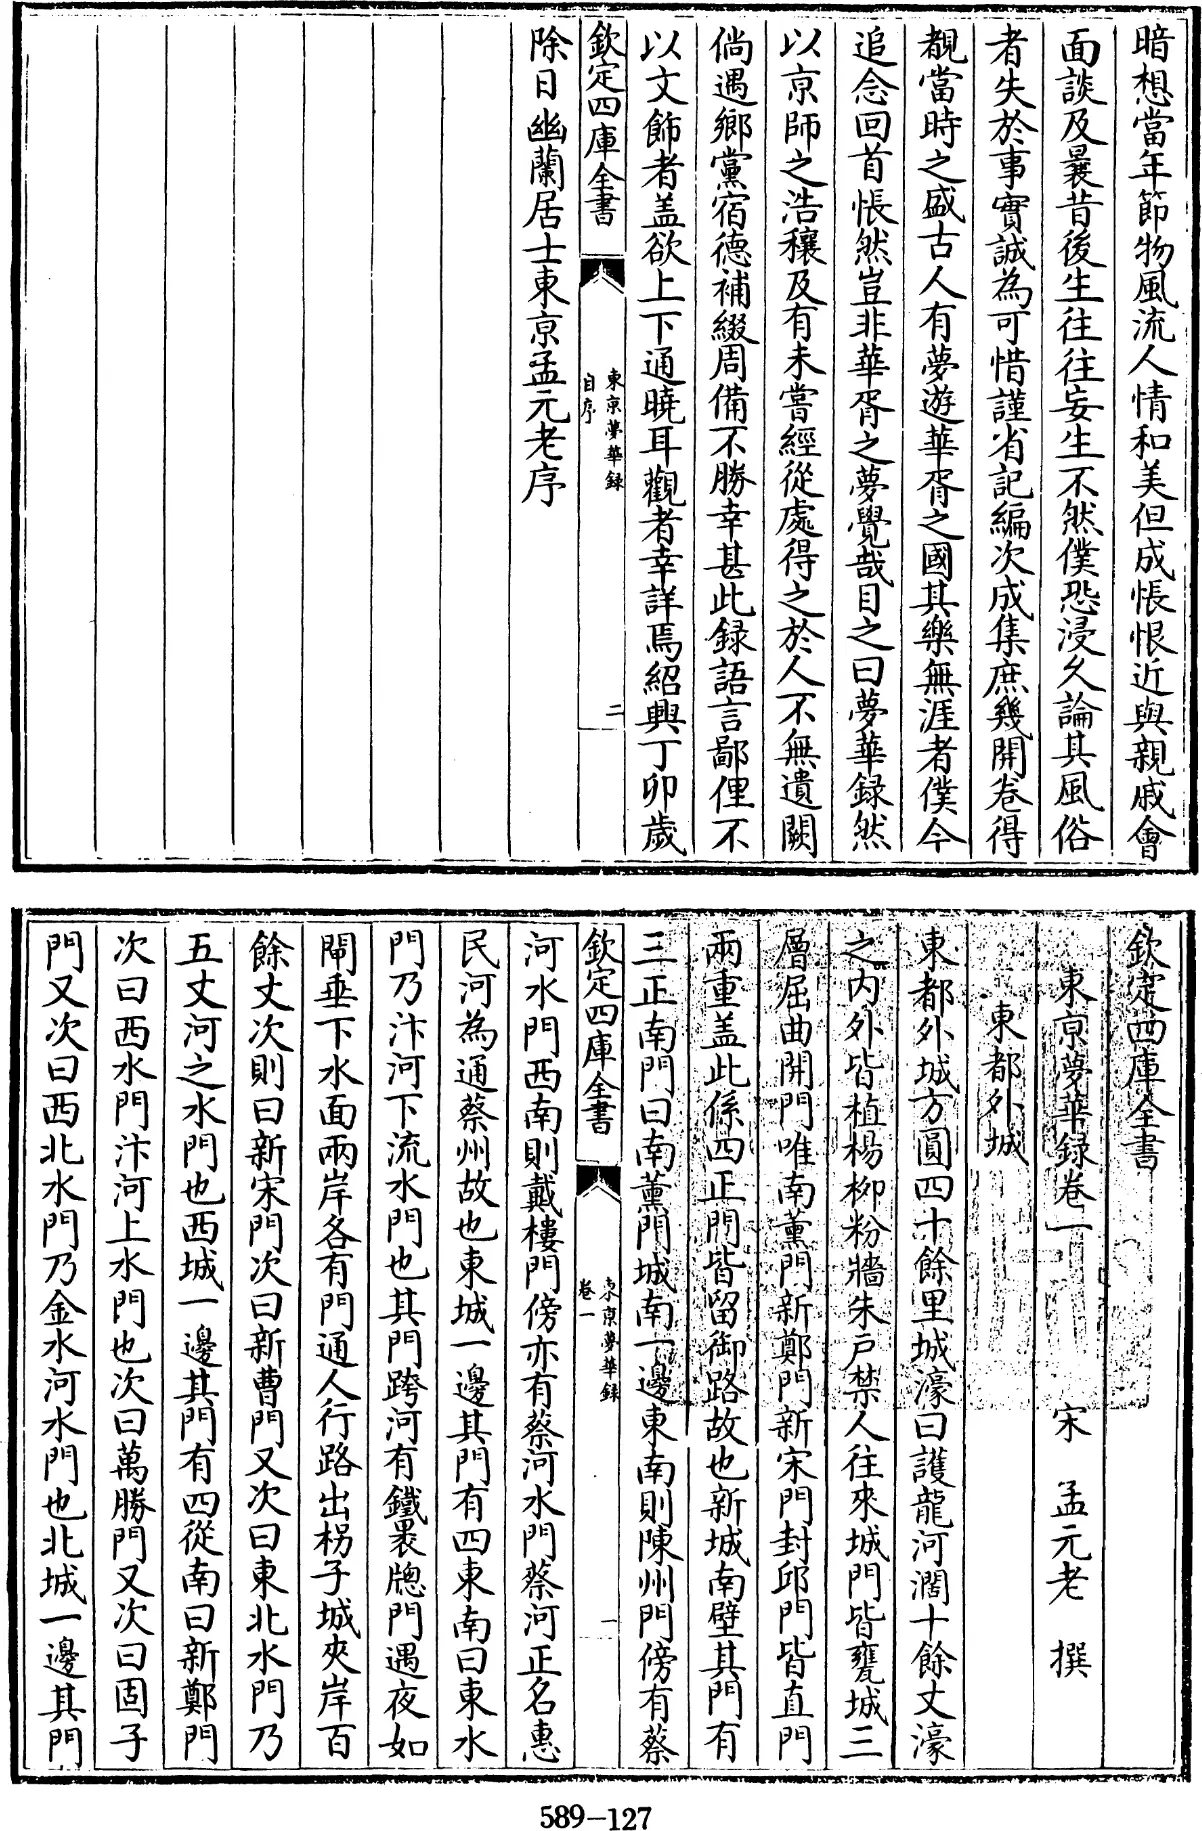 暗想當年節物風流人情和美但成悵恨近與親戚會
面談及曩昔後生往往妄生不然僕恐浸久論其風俗
者失於事實誠為可惜謹省記編次成集庶幾開卷得
覩當時之盛古人有夢遊華胥之國其樂無涯者僕今
追念回首悵然豈非華胥之夢覺哉目之曰夢華録然
以京師之浩穰及有未嘗經從處得之於人不無遺闕
倘遇鄉黨宿德補綴周備不勝幸甚此録語言鄙俚不
以文飾者盖欲上下通曉耳觀者幸詳焉紹興丁卯歲
欽定四庫全書
東京夢華録
自序
二
除日幽蘭居士東京孟元老序
欽定四庫全書
東京夢華録卷一
宋 孟元老 撰
東都外城
東都外城方圓四十餘里城濠曰護龍河濶十餘丈濠
之内外皆植楊柳粉牆朱戸禁人往來城門皆甕城三
層屈曲開門唯南薰門新鄭門新宋門封邱門皆直門
兩重盖此係四正門皆留御路故也新城南壁其門有
三正南門曰南薰門城南一邊東南則陳州門傍有蔡
欽定四庫全書
東京夢華録
卷一
一
河水門西南則戴樓門傍亦有蔡河水門蔡河正名惠
民河為通蔡州故也東城一邊其門有四東南曰東水
門乃汴河下流水門也其門跨河有鐵裹牕門遇夜如
閘垂下水面兩岸各有門通人行路出柺子城夾岸百
餘丈次則曰新宋門次曰新曹門又次曰東北水門乃
五丈河之水門也西城一邊其門有四從南曰新鄭門
次曰西水門汴河上水門也次曰萬勝門又次曰固子
門又次曰西北水門乃金水河水門也北城一邊其門
589-127